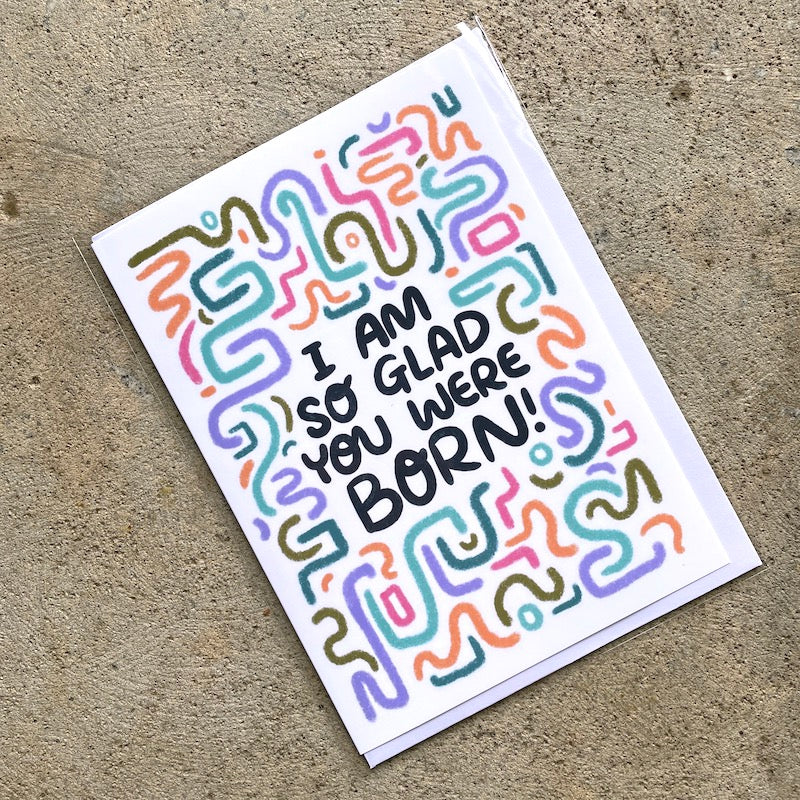 I AM
SO GLAD
YOU WERE
BORN!